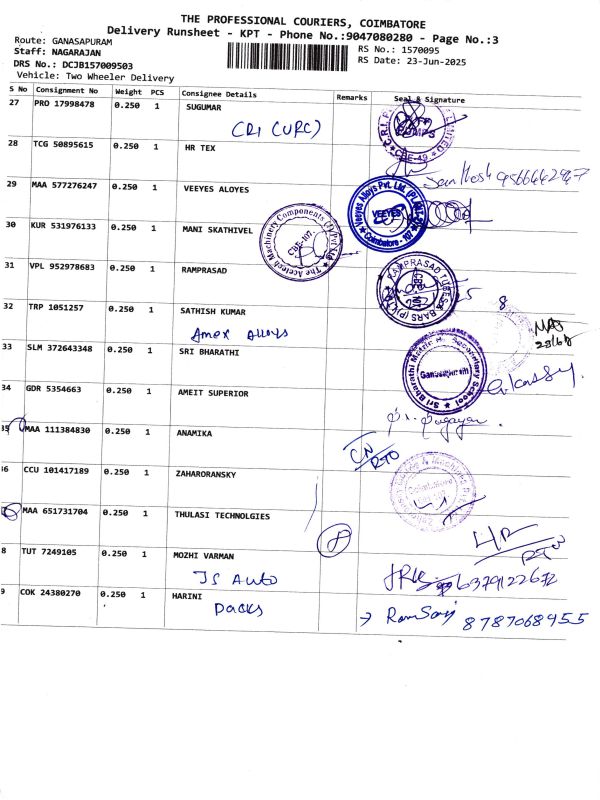 THE PROFESSIONAL COURIERS, COIMBATORE
Delivery Runsheet - KPT - Phone No.:9047080280 - Page No.:3
Route: GANASAPURAM
Staff: NAGARAJAN
DRS No.: DCJB157009503
Vehicle: Two Wheeler Delivery
RS No.: 1570095
RS Date: 23-Jun-2025
S No Consignment No Weight PCS Consignee Details Remarks Seal & Signature
27 PRO 17998478 0.250 1 SUGUMAR
CRI (URC)
28 TCG 50895615 0.250 1 HR TEX
29 MAA 577276247 0.250 1 VEEYES ALOYES
Veeyes Alloys Pvt. Ltd.
VEEYES
Coimbatore - 107
30 KUR 531976133 0.250 1 MANI SKATHIVEL
The Acctech Machinery Components (I) Pvt Ltd
CBE-107
31 VPL 952978683 0.250 1 RAMPRASAD
32 TRP 1051257 0.250 1 SATHISH KUMAR
Amex Alloys
33 SLM 372643348 0.250 1 SRI BHARATHI
Ganesapuram
34 GDR 5354663 0.250 1 AMEIT SUPERIOR
35 MAA 111384830 0.250 1 ANAMIKA
CN
RTO
36 CCU 101417189 0.250 1 ZAHARORANSKY
MAA 651731704 0.250 1 THULASI TECHNOLGIES
8
8 TUT 7249105 0.250 1 MOZHI VARMAN
JS Auto
6379122672
9 COK 24380270 0.250 1 HARINI
Packs
8787068955